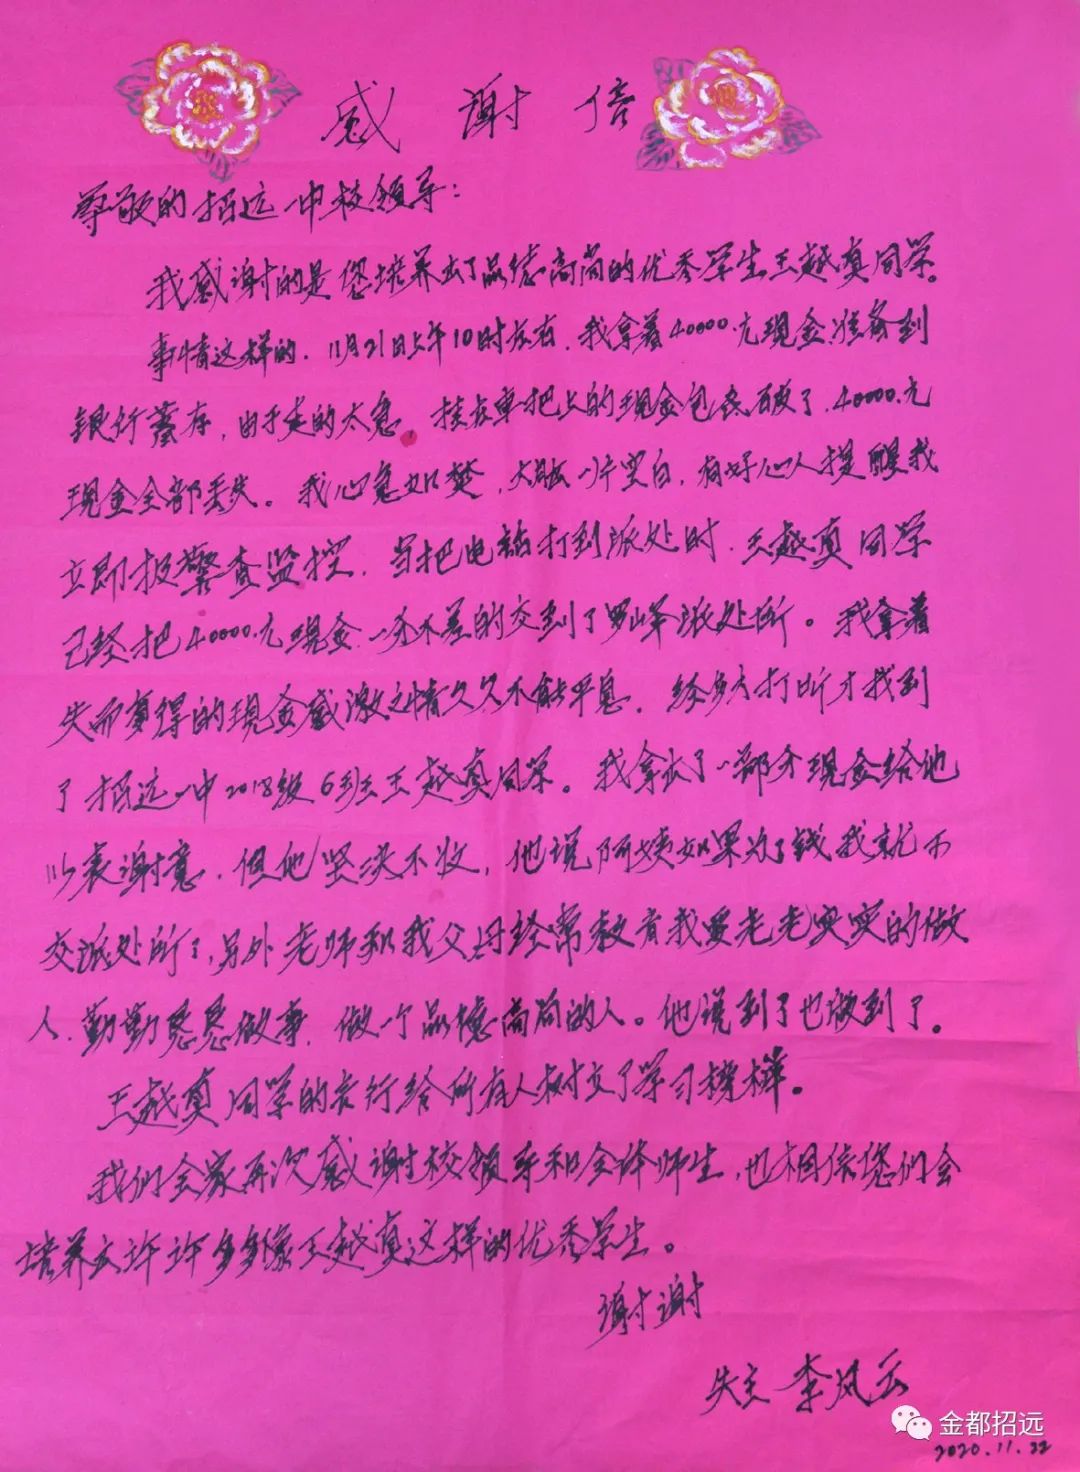 感谢信
尊敬的招远一中校领导：
我感谢的是您培养出了品德高尚的优秀学生王越真同学。
事情这样的，11月21日上午10时左右，我拿着40000.元现金准备到
银行蓄存，由于走的太急。挂在车把上的现金包磨破了，40000.元
现金全部丢失。我心急如焚，大脑一片空白，有好心人提醒我
立即报警查监控，当把电话打到派处时，王越真同学
已经把40000.元现金一分不差的交到了罗峰派处所。我拿着
失而复得的现金感激之情久久不能平息，经多方打听才找到
了招远一中2018级6班王越真同学。我拿出了一部分现金给他
以表谢意，但他坚决不收，他说阿姨如果为了钱我就不
交派处所了，另外老师和我父母经常教育我要老老实实的做
人，勤勤恳恳做事，做一个品德高尚的人。他说到了也做到了。
王越真同学的表行给所有人树立了学习榜样。
我们全家再次感谢校领导和全体师生，也相信您们会
培养出许许多多像王越真这样的优秀学生。
谢谢
失主 李凤云
金都招远
2020.11.22